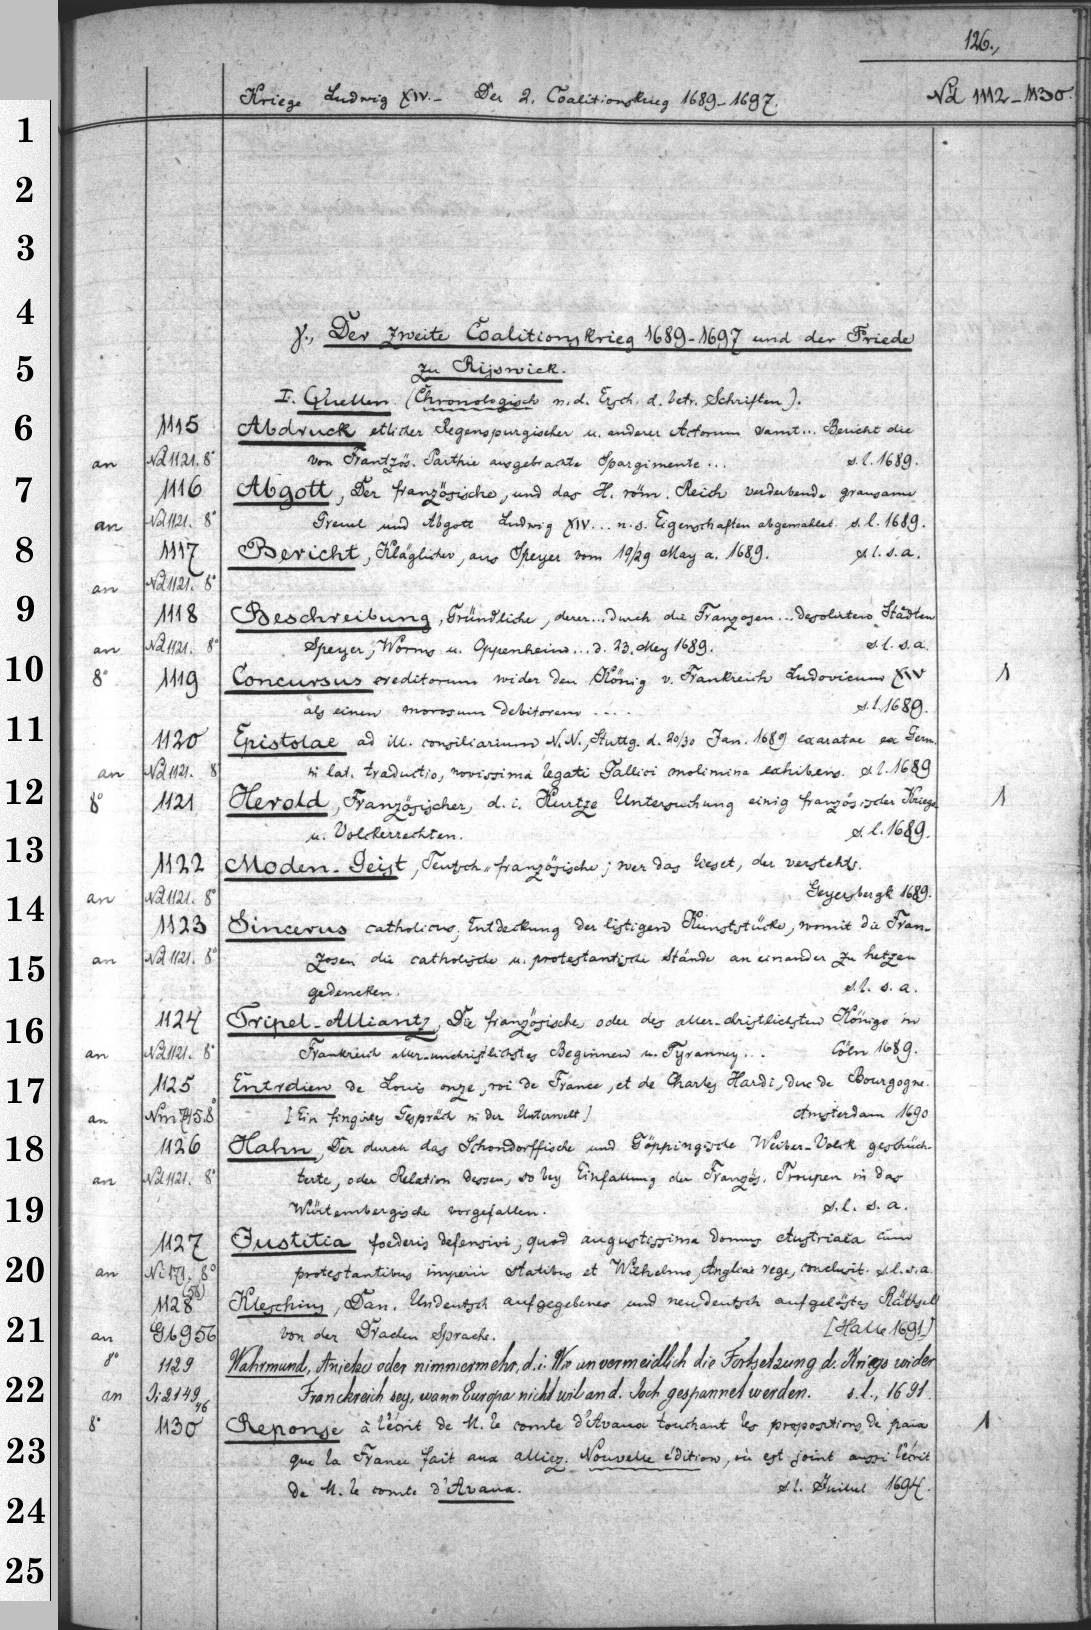 126.,
Kriege Ludwig XIV. - Der 2. Coalitionskrieg 1689-1697. Nd 1112-1130.
1
2
3
4
γ., Der zweite Coalitionskrieg 1689-1697 und der Friede
5
zu Rijswick.
I. Quellen. (Chronologisch n. d. Ersch. d. betr. Schriften).
6 1115 Abdruck etlicher Regenspurgischer u. anderer Actorum samt... Bericht die
an Nd 1121. 8° von Frantzös. Parthie ausgebrachte Spargimente... s. l. 1689.
7 1116 Abgott, Der französische, und das H. röm. Reich verderbende grausame
an Nd 1121. 8° Greuel und Abgott Ludwig XIV... n. s. Eigenschaften abgemahlet. s. l. 1689.
8 1117 Bericht, Kläglicher, aus Speyer vom 19/29 May a. 1689. s. l. s. a.
an Nd 1121. 8°
9 1118 Beschreibung, Gründliche, derer... durch die Franzosen... desolirten Städten
an Nd 1121. 8° Speyer, Worms u. Oppenheim... d. 23. Mey 1689. s. l. s. a.
10 8° 1119 Concursus creditorum wider den König v. Frankreich Ludovicum XIV 1
als einen morosum debitorem .... s. l. 1689.
11 1120 Epistolae ad ill. consiliarium N. N., Stuttg. d. 20/30 Jan. 1689 exaratae ex Germ.
an Nd 1121. 8 in lat. traductio, novissima legati Gallici molimina exhibens. s. l. 1689
12 8° 1121 Herold, Französischer, d. i. Kurtze Untersuchung einig französischer Kriegs 1
u. Volckerrechten. s. l. 1689.
13 1122 Moden-Geist, Teutsch-französische; wer das lieset, der verstehts.
an Nd 1121. 8° Geyersbergk 1689.
14 1123 Sincerus catholicus, Entdeckung der listigen Kunststücke, womit die Fran-
15 an Nd 1121. 8° zosen die catholische u. protestantische Stände an einander zu hetzen
gedencken. s. l. s. a.
16 1124 Tripel-Alliantz, Die französische oder des aller-christlichsten Königs in
an Nd 1121. 8° Frankreich aller-unchristlichstes Beginnen u. Tyranney... Cöln 1689.
17 1125 Entretien de Louis onze, roi de France, et de Charles Hardi, duc de Bourgogne.
an Nm 745.8° [Ein fingirtes Gespräch in der Unterwelt] Amsterdam 1690
18 1126 Hahn, Der durch das Schondorffische und Göppingische Weiber-Volck geschüch-
an Nd 1121. 8° terte, oder Relation dessen, so bey Einfallung der Französ. Troupen in das
19 Würtembergische vorgefallen. s. l. s. a.
1127 Justitia foederis defensivi, quod augustissima domus Austriaca cum
20 an Ni 171. 8° protestantibus imperii statibus et Wilhelmo, Angliae rege, conclusit. s. l. s. a.
(58)
1128 Kleschius, Dan. Undeutsch aufgegebenes und neudeutsch aufgelöstes Räthsel
21 an Gb 956 von der Drachen Sprache. [Halle 1691]
8° 1129 Wahrmund, Anietzo oder nimmermehr, d. i. Wo unvermeidlich die Fortsetzung d. Kriegs wider
22 an Ji 2149 46 Franckreich sey, wann Europa nicht wil an d. Joch gespannet werden. s. l., 1691.
8° 1130 Reponse à l'écrit de M. le comte d'Avaux touchant les propositions de paix 1
23 que la France fait aux alliez. Nouvelle édition, où est joint aussi l'écrit
de M. le comte d'Avaux. s. l. Juillet 1694.
24
25